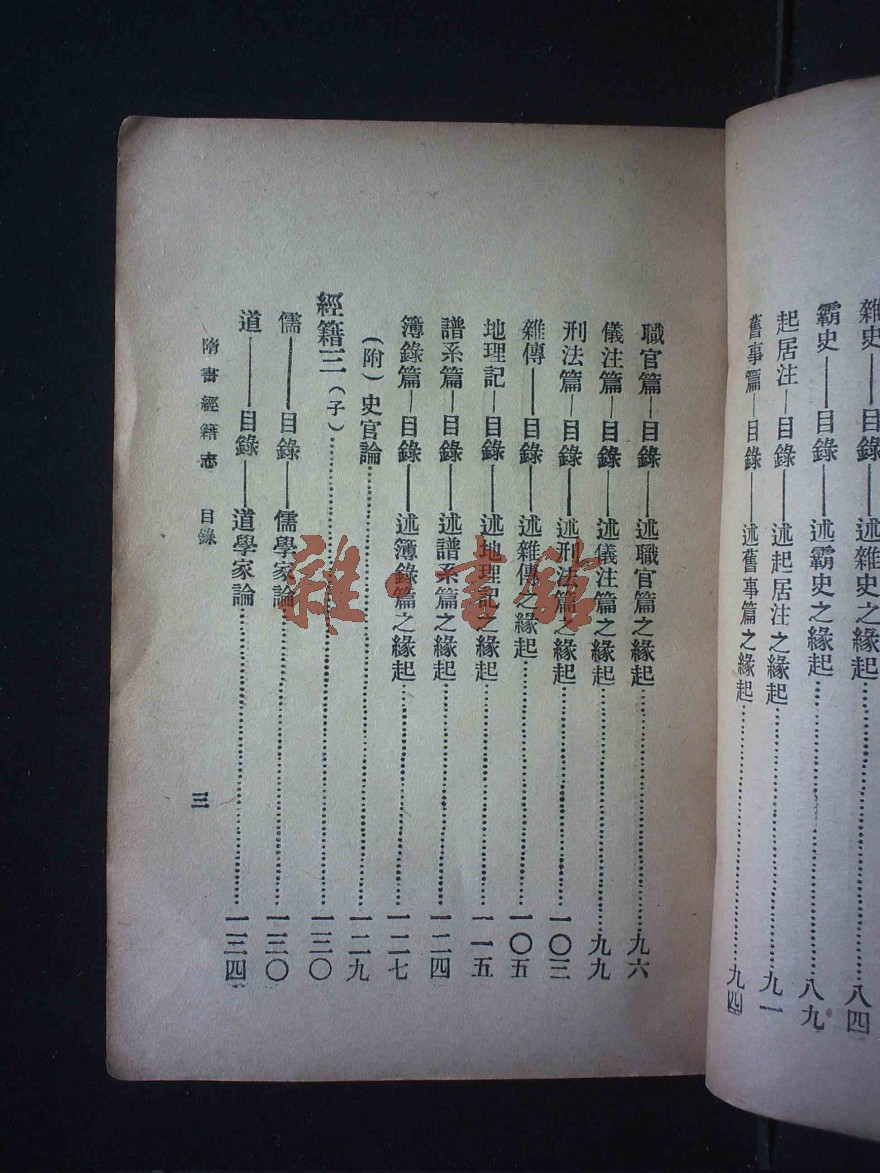 雜史——目錄——述雜史之緣起……八四
霸史——目錄——述霸史之緣起……八九
起居注—目錄——述起居注之緣起……九一
舊事篇—目錄——述舊事篇之緣起……九四
職官篇—目錄——述職官篇之緣起……九六
儀注篇—目錄——述儀注篇之緣起……九九
刑法篇—目錄——述刑法篇之緣起……一〇三
雜傳——目錄——述雜傳之緣起……一〇五
地理記—目錄——述地理記之緣起……一一五
譜系篇—目錄——述譜系篇之緣起……一二四
簿錄篇—目錄——述簿錄篇之緣起……一二七
(附)史官論……一二九
經籍三(子)……一三〇
儒——目錄——儒學家論……一三〇
道——目錄——道學家論……一三四
隋書經籍志 目錄
三
雜·書館